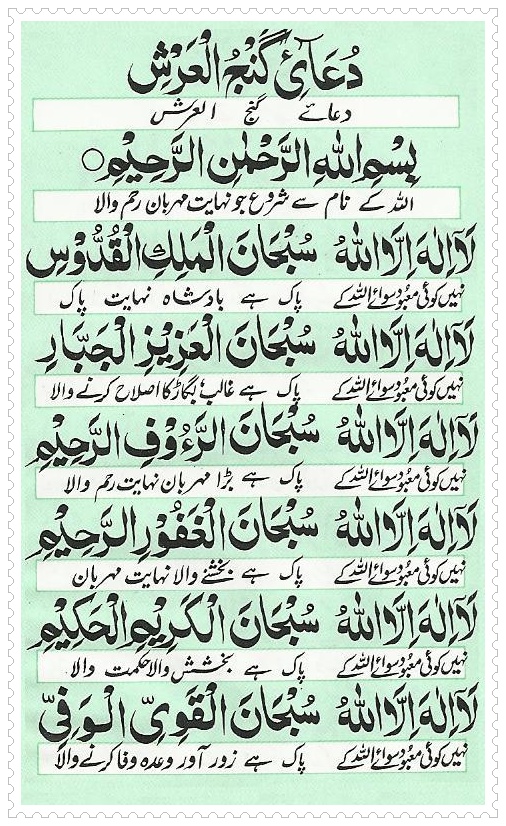 دُعَآئِ گَنْجُ الْعَرْشِ
دعائے گنج العرش
بِسْمِ اللهِ الرَّحْمٰنِ الرَّحِيْمِ○
اللہ کے نام سے شروع جو نہایت مہربان رحم والا
لَآ اِلٰهَ اِلَّا اللهُ سُبْحَانَ الْمَلِكِ الْقُدُّوْسِ
نہیں کوئی معبود سوائے اللہ کے پاک ہے بادشاہ نہایت پاک
لَآ اِلٰهَ اِلَّا اللهُ سُبْحَانَ الْعَزِيْزِ الْجَبَّارِ
نہیں کوئی معبود سوائے اللہ کے پاک ہے غالب بگاڑ کا اصلاح کرنے والا
لَآ اِلٰهَ اِلَّا اللهُ سُبْحَانَ الرَّءُوْفِ الرَّحِيْمِ
نہیں کوئی معبود سوائے اللہ کے پاک ہے بڑا مہربان نہایت رحم والا
لَآ اِلٰهَ اِلَّا اللهُ سُبْحَانَ الْغَفُوْرِ الرَّحِيْمِ
نہیں کوئی معبود سوائے اللہ کے پاک ہے بخشنے والا نہایت مہربان
لَآ اِلٰهَ اِلَّا اللهُ سُبْحَانَ الْكَرِيْمِ الْحَكِيْمِ
نہیں کوئی معبود سوائے اللہ کے پاک ہے بخشش والا حکمت والا
لَآ اِلٰهَ اِلَّا اللهُ سُبْحَانَ الْقَوِيِّ الْوَفِيِّ
نہیں کوئی معبود سوائے اللہ کے پاک ہے زور آور وعدہ وفا کرنے والا